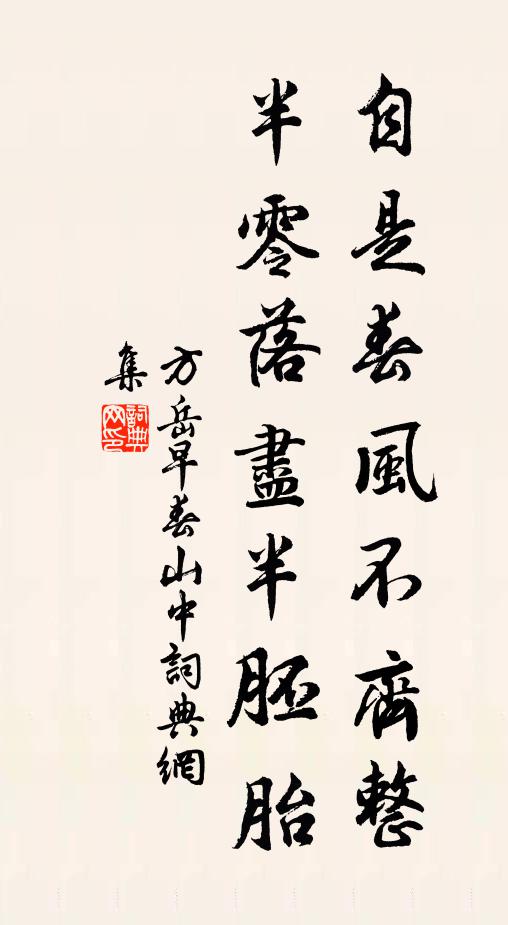 自是春風不齊整
半零落盡半胚胎
方岳早春山中詞典網
集
詞典网印